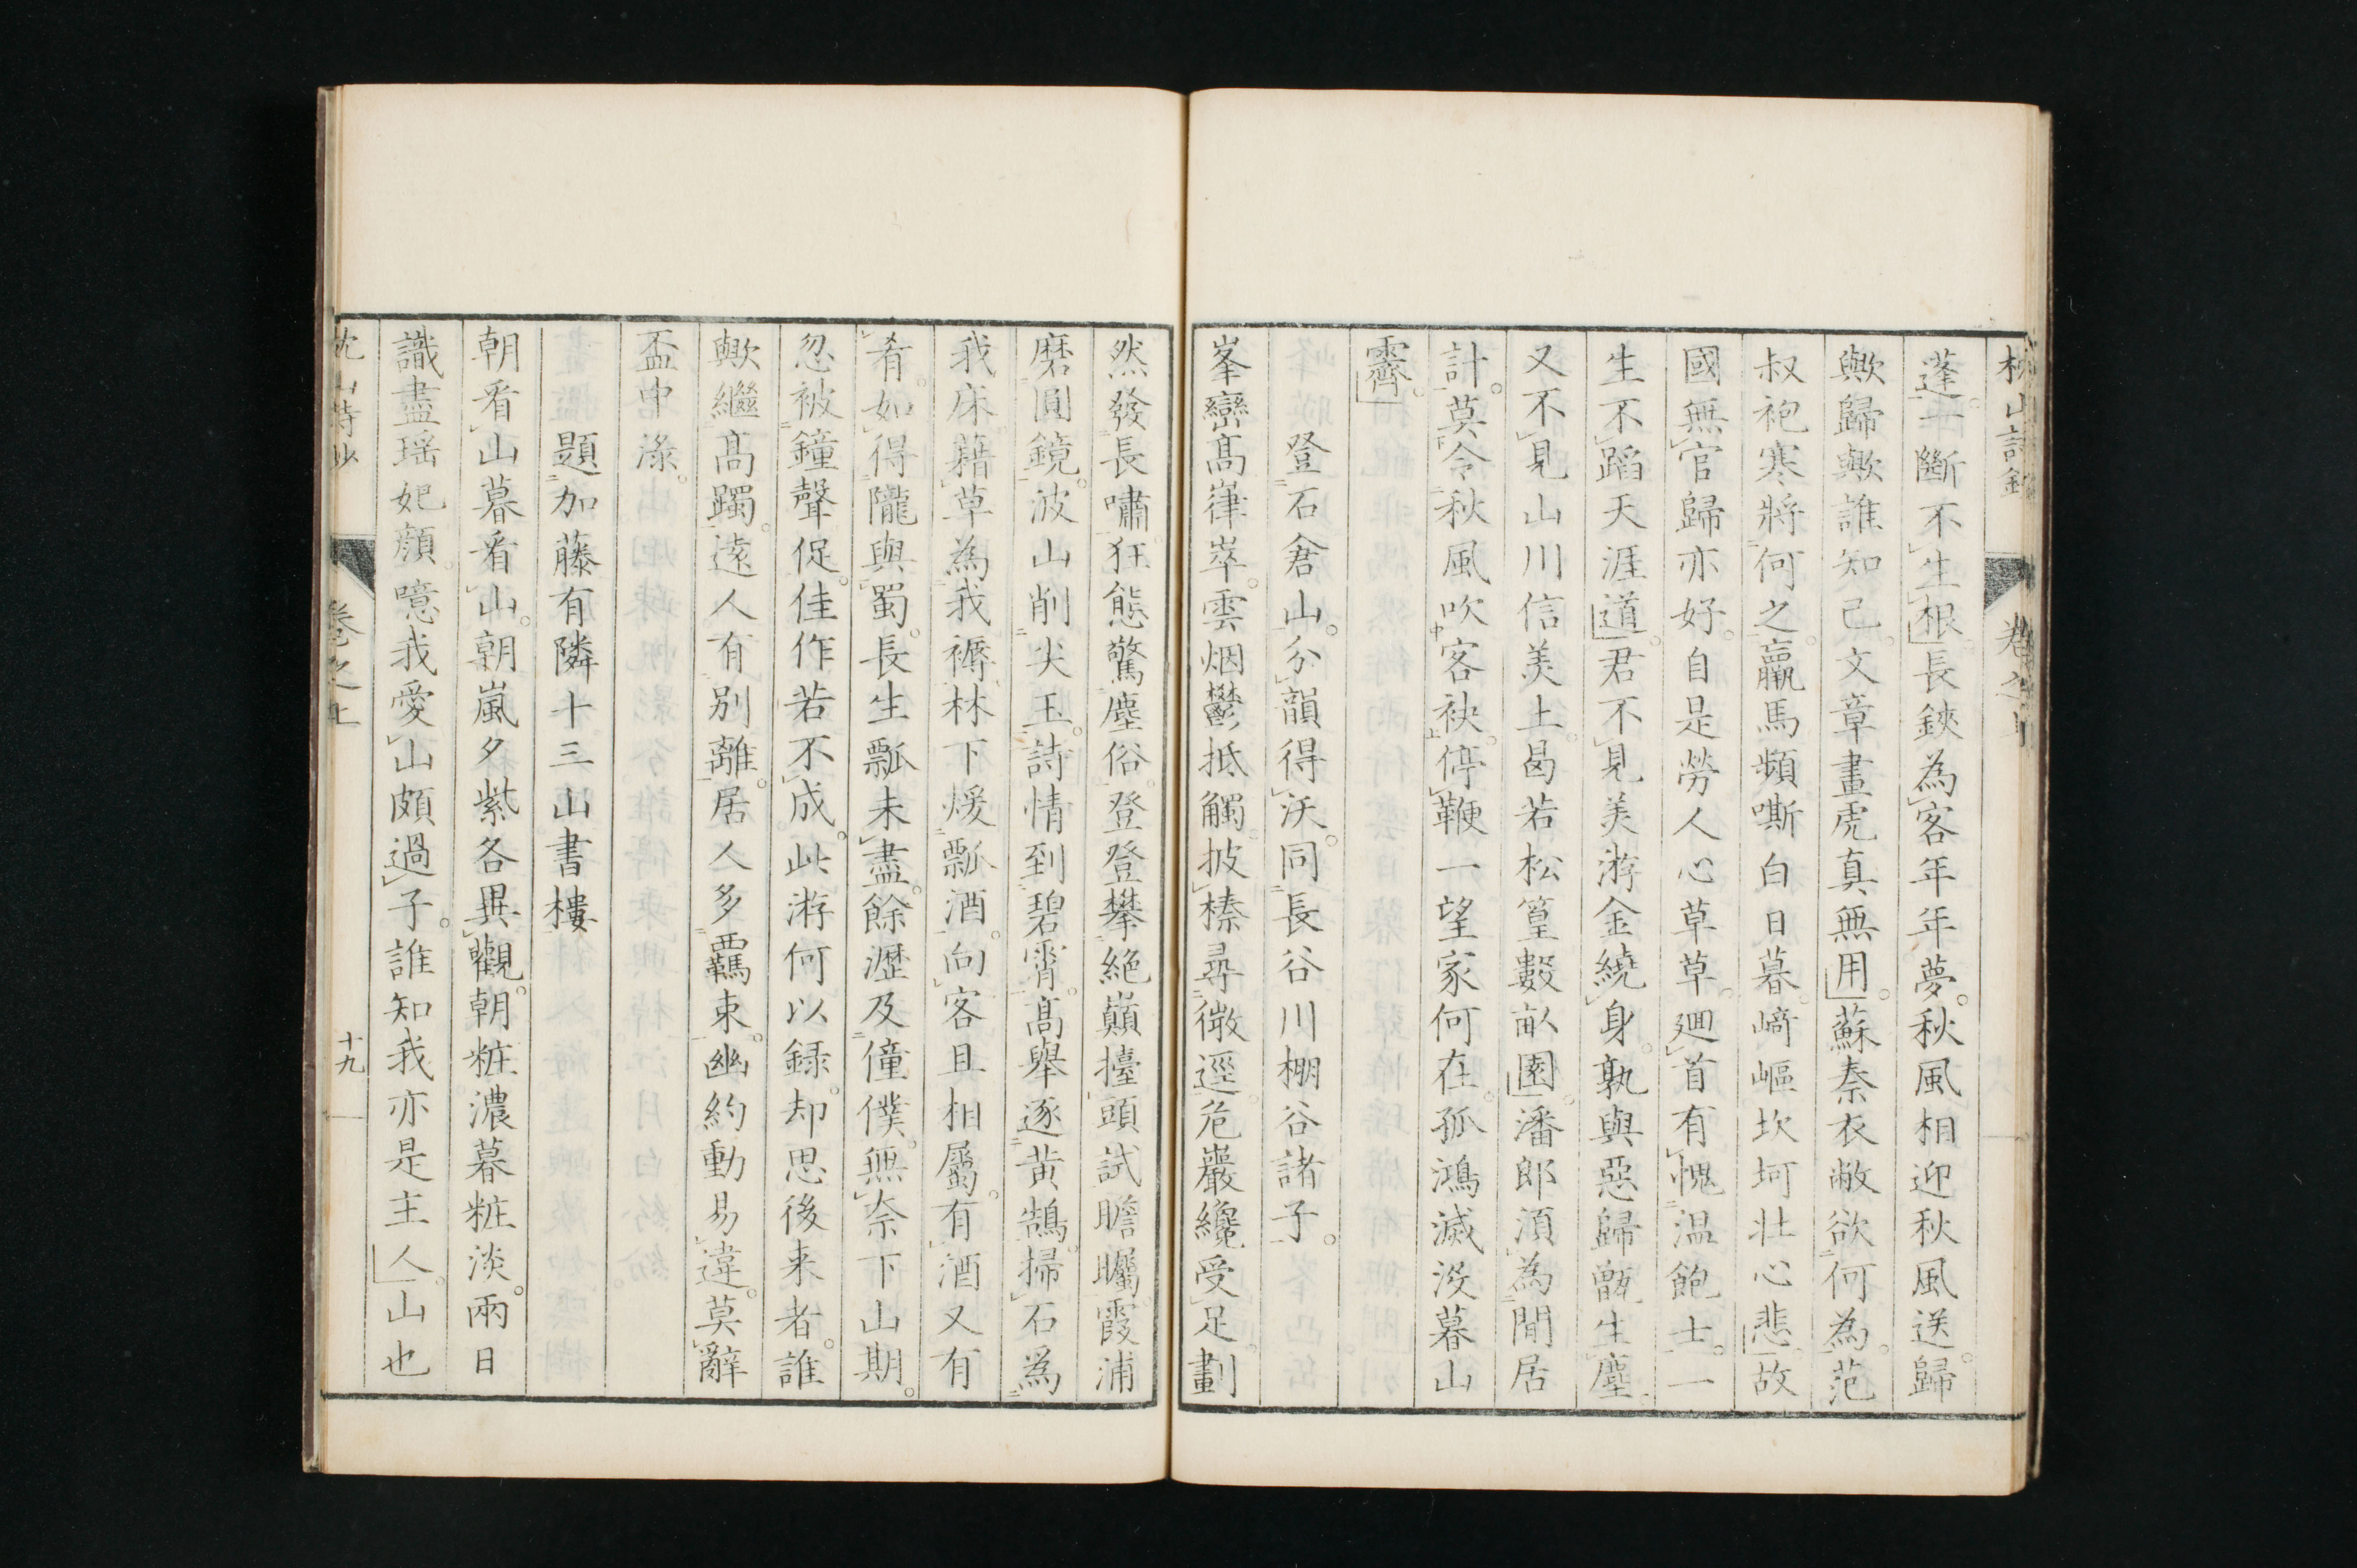 枕山詩鈔　卷之上
蓬一斷不生根長鋏為客年年夢秋風相迎秋風送歸
歟歸歟誰知己文章畫虎真無用蘇秦衣敝欲何為范
叔袍寒將何之羸馬頻嘶白日暮崎嶇坎坷壯心悲故
國無官歸亦好自是勞人心草草廻首有愧温飽士一
生不蹈天涯道君不見美游金繞身孰與惡歸甑生塵
又不見山川信美土曷若松篁數畝園潘郎須為閒居
計莫令秋風吹客袂停鞭一望家何在孤鴻滅沒暮山
霽
登石倉山分韻得沃同長谷川棚谷諸子
峯巒髙嵂崒雲烟鬱抵觸披榛尋微逕危巖纔受足劃
然發長嘯狂態驚塵俗登登攀絶巔擡頭試瞻矚霞浦
磨圓鏡波山削尖玉詩情到碧霄髙舉逐黄鵠掃石為
我床藉草為我褥林下煖瓢酒向客且相屬有酒又有
肴如得隴與蜀長生瓢未盡餘瀝及僮僕無奈下山期
忽被鐘聲促佳作若不成此游何以録却思後来者誰
歟繼髙躅遠人有別離居人多羈束幽約動易違莫辭
盃中渌
題加藤有隣十三山書樓
朝看山暮看山朝嵐夕紫各異觀朝粧濃暮粧淡兩日
識盡瑶妃顔噫我愛山頗過子誰知我亦是主人山也
枕山詩鈔　卷之上　十九